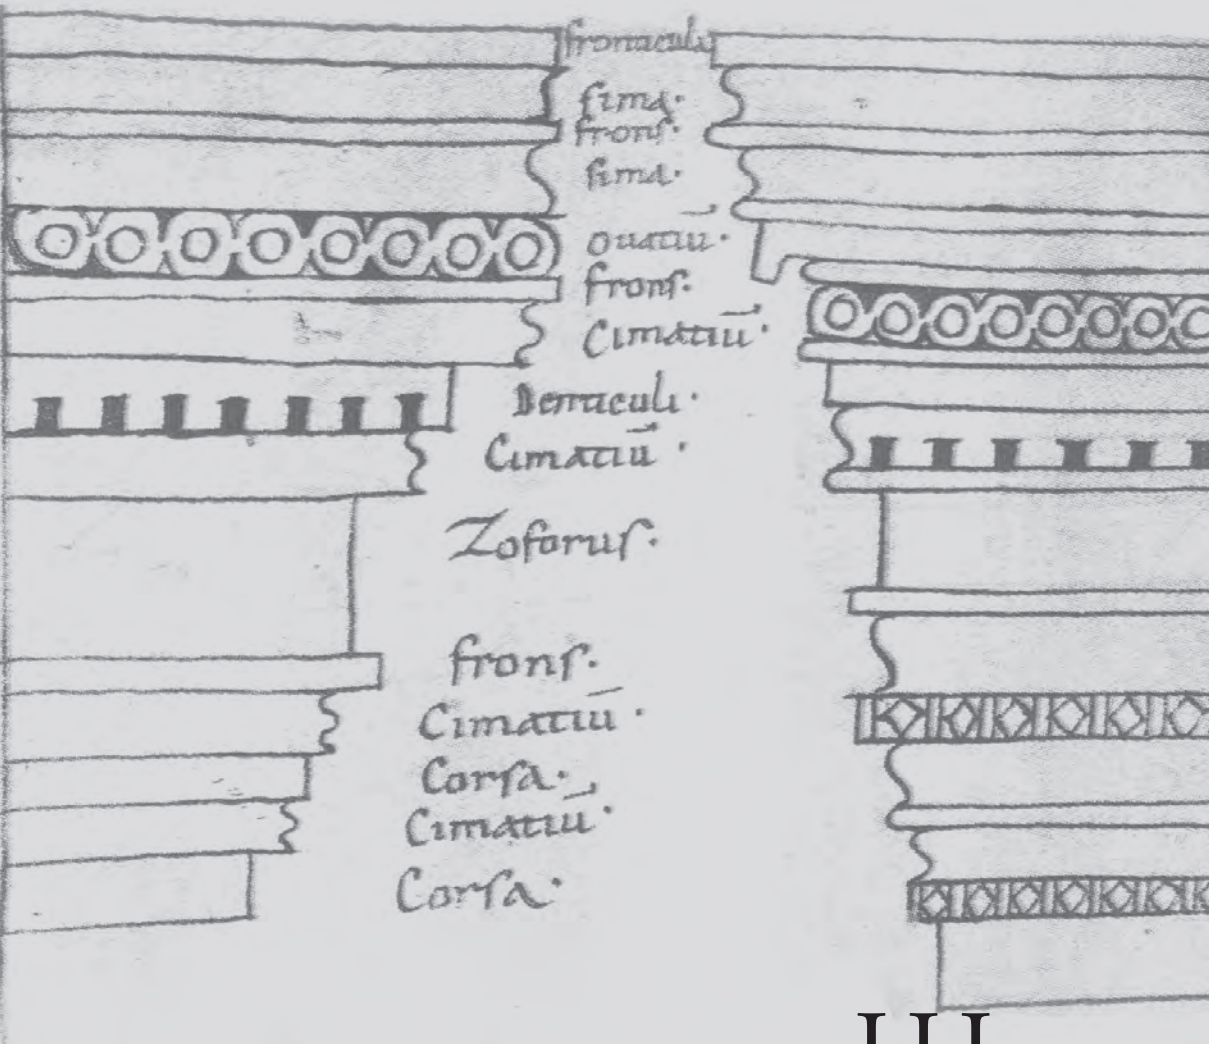 fronticuli
ſima·
fronſ·
ſima·
ouatiū·
fronſ·
Cimatiū·
Denticuli·
Cimatiū·
Zoforuſ·
fronſ·
Cimatiū·
Corſa·
Cimatiū·
Corſa·